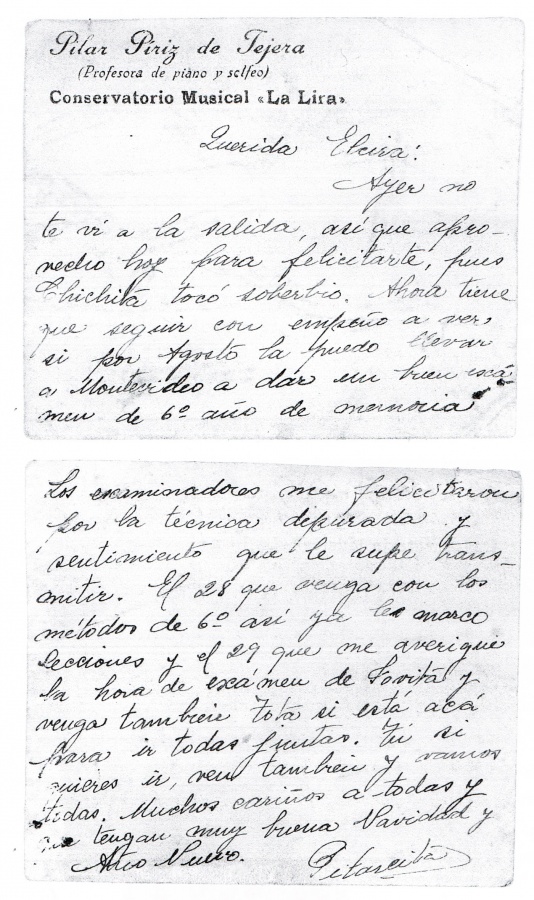 Pilar Píriz de Tejera
(Profesora de piano y solfeo)
Conservatorio Musical «La Lira»
Querida Elcira:
Ayer no
te vi a la salida, así que apro-
vecho hoy para felicitarte, pues
Chichita tocó soberbio. Ahora tiene
que seguir con empeño a ver,
si por Agosto la puedo llevar
a Montevideo a dár un buen exá-
men de 6º año de memoria
Los examinadores me felicitaron
por la técnica depurada y
sentimiento que le supe trans-
mitir. El 28 que venga con los
métodos de 6º así ya le marco
lecciones y el 29 que me averigüe
la hora de exámen de Jovita y
venga tambien Tota si está acá
para ir todas juntas. Tú si
quieres ir, ven tambien y vamos
todas. Muchos cariños a todas y
que tengan muy buena Navidad y
Año Nuevo. Pilarcita